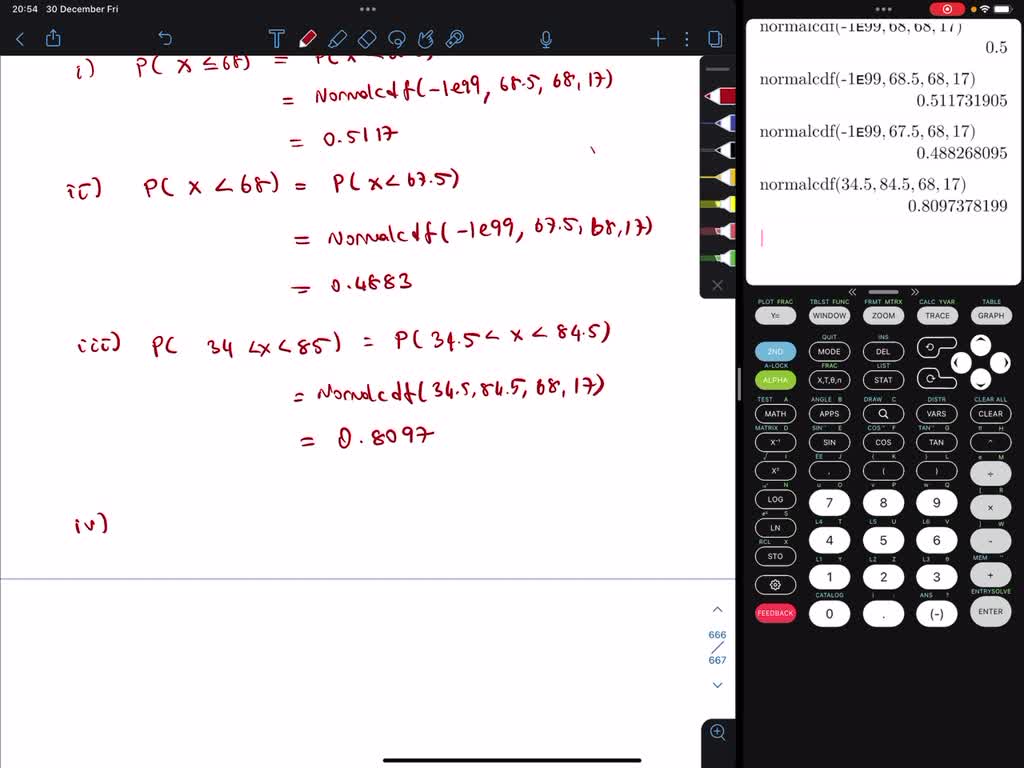 20:54 30 December Fri
i) P( X ≤ 68) =
= Normalcdf(-1e99, 68.5, 68, 17)
= 0.5117
ii) P( X < 68) = P( X < 67.5)
= Normalcdf(-1e99, 67.5, 68, 17)
= 0.4883
iii) P( 34 < X < 85) = P( 34.5 < X < 84.5)
= Normalcdf( 34.5, 84.5, 68, 17)
= 0.8097
iv)
666
667
normalcdf(-1E99, 68, 68, 17)
0.5
normalcdf(-1E99, 68.5, 68, 17)
0.511731905
normalcdf(-1E99, 67.5, 68, 17)
0.488268095
normalcdf(34.5, 84.5, 68, 17)
0.8097378199
PLOT FRAC TBLST FUNC FRMT MTRX CALC YVAR TABLE
Y= WINDOW ZOOM TRACE GRAPH
QUIT INS
2ND MODE DEL
A-LOCK FRAC LIST
ALPHA X,T,θ,n STAT
TEST A ANGLE B DRAW C DISTR CLEAR ALL
MATH APPS VARS CLEAR
MATRIX D SIN⁻¹ E COS⁻¹ F TAN⁻¹ G π H
X⁻¹ SIN COS TAN ^
√ I EE J { K } L e M
X² , ( ) ÷
N u O v P w Q [ R
LOG 7 8 9 ×
S L4 T L5 U L6 V ] W
LN 4 5 6 -
RCL X L1 Y L2 Z L3 θ MEM "
STO 1 2 3 +
CATALOG i : ANS ? ENTRYSOLVE
FEEDBACK 0 . (-) ENTER